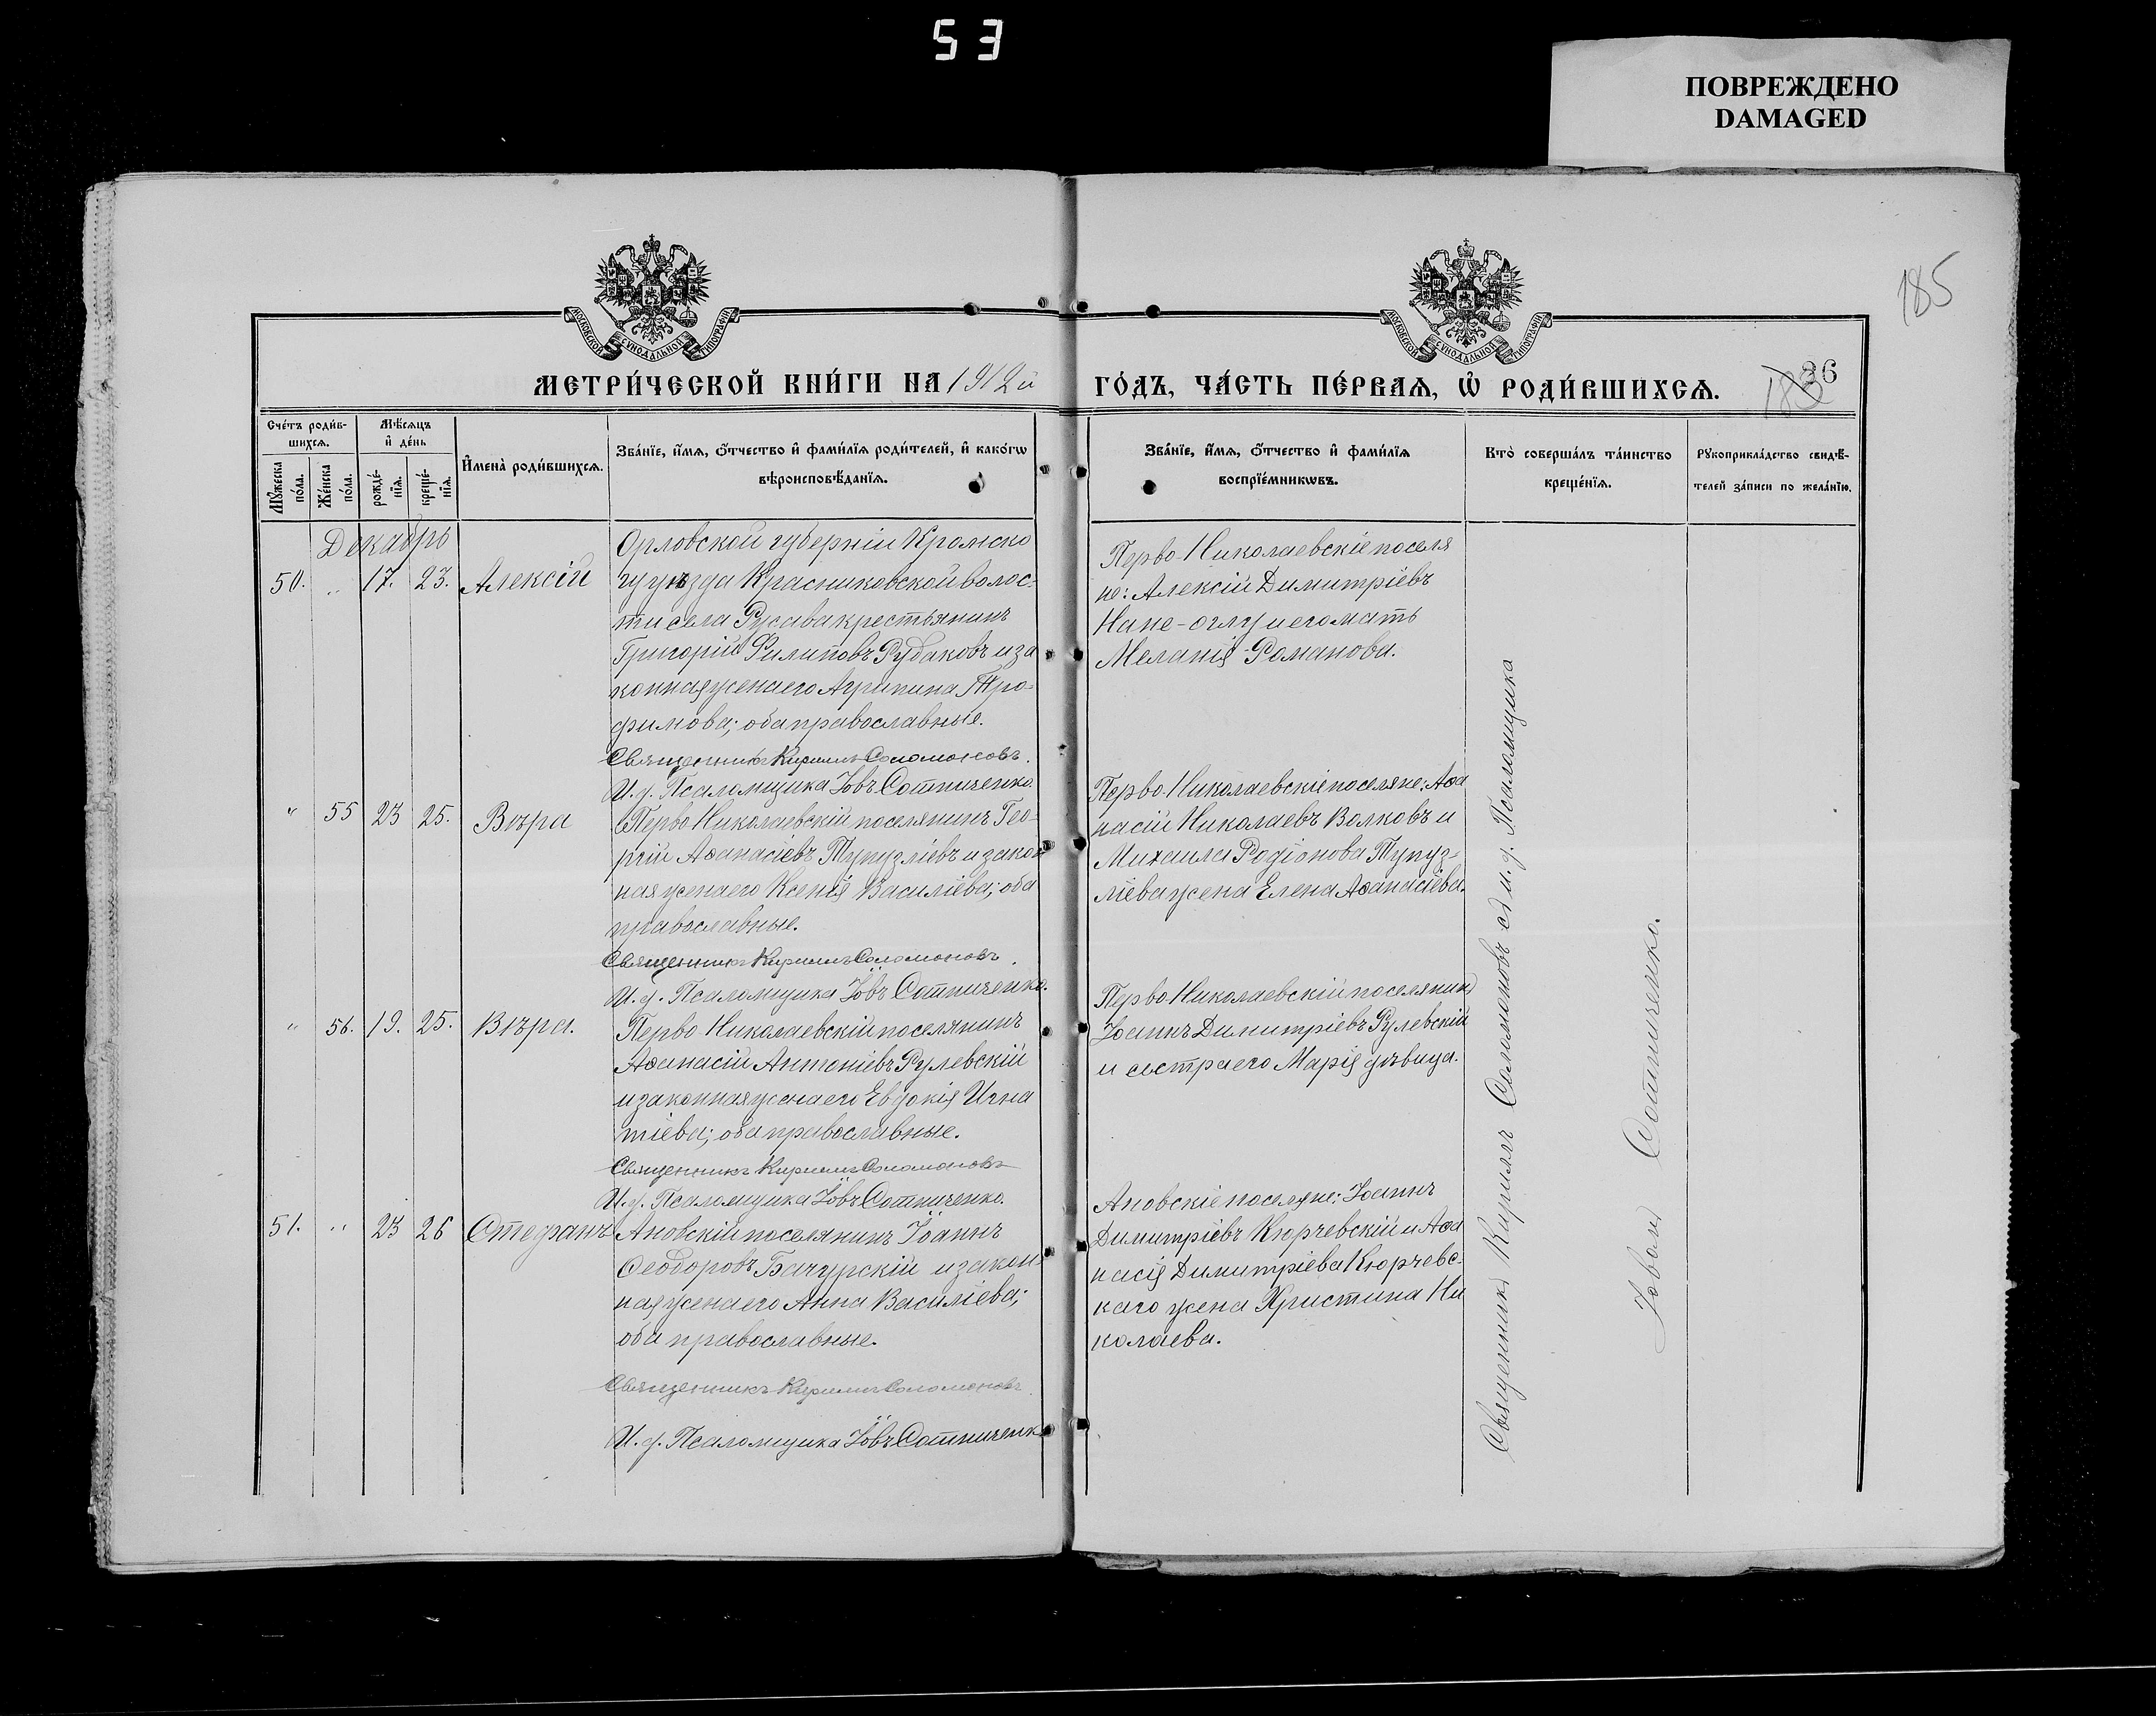 53
ПОВРЕЖДЕНО
DAMAGED
185
МОСКОВСКОЙ СѴНОДАЛЬНОЙ ТИПОГРАФІИ
МОСКОВСКОЙ СѴНОДАЛЬНОЙ ТИПОГРАФІИ
МЕТРИ́ЧЕСКОЙ КНИ́ГИ НА 1912й
ГО́ДЪ, ЧА́СТЬ ПЕ́РВАѦ, Ѡ҆ РОДИ́ВШИХСѦ.
183
36
Сче́тъ роди́в-
шихсѧ.
Мѣ́сѧцъ
и҆ де́нь
Мꙋ́жеска
по́ла.
Же́нска
по́ла.
рожде́-
нїѧ.
креще́-
нїѧ.
И҆мена̀ роди́вшихсѧ.
Зва́нїе, и҆́мѧ, ѻ҆́тчество и҆ фами́лїѧ роди́телей, и҆ како́гѡ
вѣроисповѣ́данїѧ.
Зва́нїе, и҆́мѧ, ѻ҆́тчество и҆ фами́лїѧ
воспрїе́мникѡвъ.
Кто̀ соверша́лъ та́инство
креще́нїѧ.
Рꙋкоприкла́дство свидѣ́-
телей за́писи по жела́нїю.
Декабрь
50. „ 17. 23. Алексій
Орловской губерніи Кромско
гу уѣзда Красниковской волос-
ти села Русава крестьянинъ
Григорій Филиповъ Рубаковъ и за
конная жена его Агрипина Тро-
фимова; оба православные.
Священникъ Кириллъ Соломоновъ.
И. д. Псаломщика Іовъ Сотниченко.
Перво-Николаевскіе поселя
не: Алексій Димитріевъ
Напе-оглу и его мать
Меланія Романова.
„ 55 23 25. Вѣра
Перво Николаевскій поселянинъ Гео-
ргій Аѳанасіевъ Тупузліевъ и закон
ная жена его Ксенія Василіева; оба
православные.
Священникъ Кириллъ Соломоновъ.
И. д. Псаломщика Іовъ Сотниченко.
Перво-Николаевскіе поселяне: Аѳа
насій Николаевъ Волковъ и
Михаила Родіонова Тупуз-
ліева жена Елена Аѳанасіева.
„ 56. 19. 25. Вѣра.
Перво Николаевскій поселянинъ
Аѳанасій Антоніевъ Рулевскій
и законная жена его Евдокія Игна
тіева; оба православные.
Священникъ Кириллъ Соломоновъ
И. д. Псаломщика Іовъ Сотниченко.
Перво-Николаевскій поселянинъ
Іоаннъ Димитріевъ Рулевскій
и сестра его Марія дѣвица.
51. „ 23 26 Стефанъ
Ановскій поселянинъ Іоаннъ
Ѳеодоровъ Бачурскій и закон-
ная жена его Анна Василіева;
оба православные.
Священникъ Кириллъ Соломоновъ.
И. д. Псаломщика Іовъ Сотниченко
Ановскіе поселяне: Іоаннъ
Димитріевъ Кюрчевскій и Аѳа
насія Димитріева Кюрчевс-
каго жена Христина Ни
колаева.
Священникъ Кириллъ Соломоновъ съ и. д. Псаломщика
Іовомъ Сотниченко.